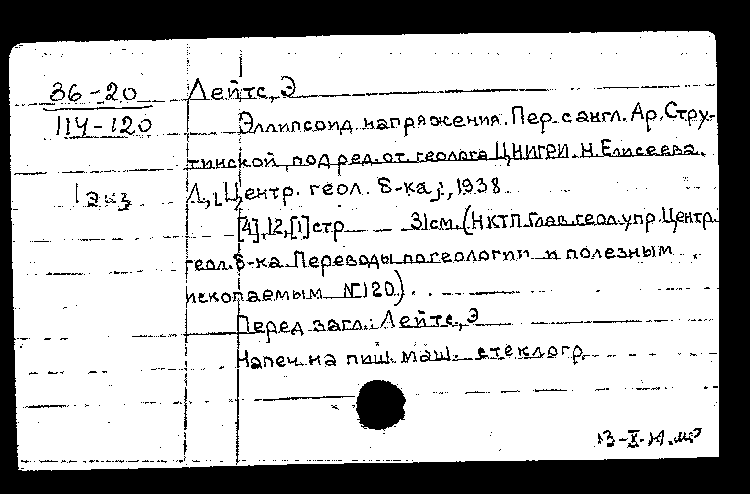 36-20 Лейтс, Э
114-120 Эллипсоид напряжения. Пер. с англ. Ар. Стру-
тинской, под ред. от. геолога ЦНИГРИ. Н. Елисеева.
1 экз Л., [Центр. геол. б-ка], 1938
[4], 12, [1] стр 31 см. (НКТП. Глав. геол. упр. Центр.
геол. б-ка. Переводы по геологии и полезным
ископаемым №120).
Перед загл.: Лейтс, Э
Напеч. на пиш. маш. стеклогр.
13-X-